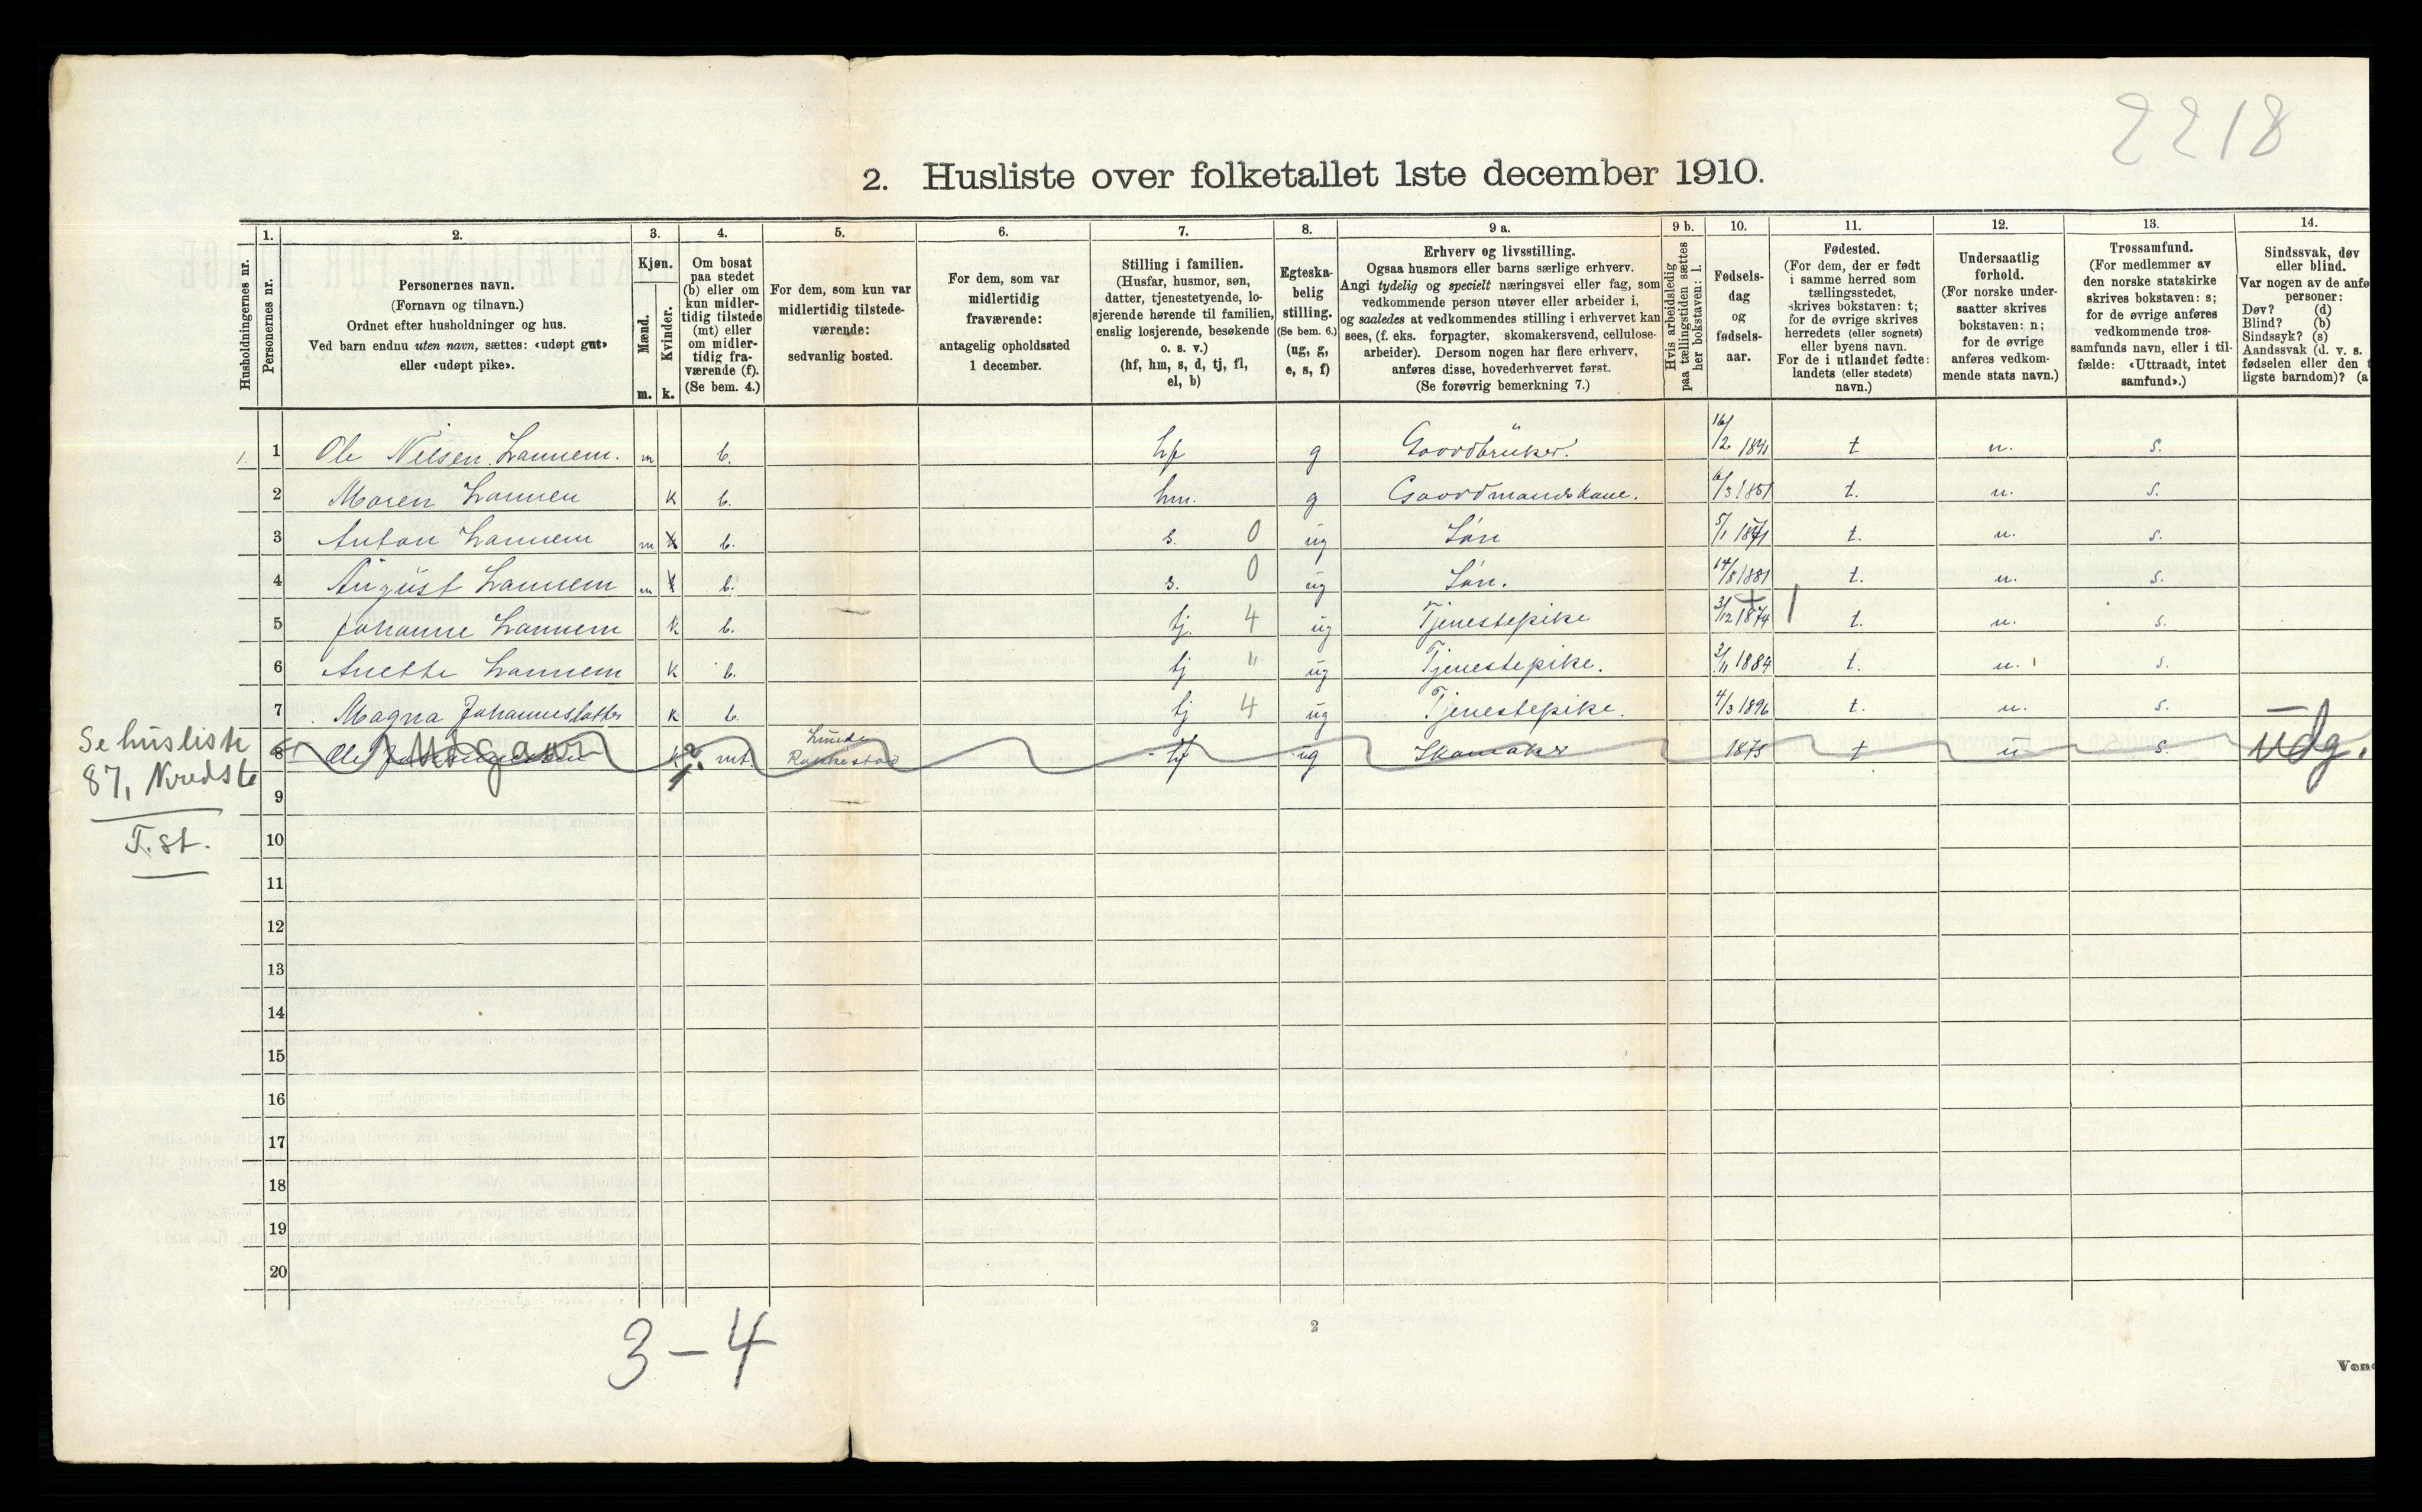 2218
2. Husliste over folketallet 1ste december 1910.
Husholdningernes nr.
1.
Personernes nr.
2.
Personernes navn.
(Fornavn og tilnavn.)
Ordnet efter husholdninger og hus.
Ved barn endnu uten navn, sættes: «udøpt gut»
eller «udøpt pike».
3.
Kjøn.
Mænd.
Kvinder.
m. k.
4.
Om bosat
paa stedet
(b) eller om
kun midler-
tidig tilstede
(mt) eller
om midler-
tidig fra-
værende (f).
(Se bem. 4.)
5.
For dem, som kun var
midlertidig tilstede-
værende:
sedvanlig bosted.
6.
For dem, som var
midlertidig
fraværende:
antagelig opholdssted
1 december.
7.
Stilling i familien.
(Husfar, husmor, søn,
datter, tjenestetyende, lo-
sjerende hørende til familien,
enslig losjerende, besøkende
o. s. v.)
(hf, hm, s, d, tj, fl,
el, b)
8.
Egteska-
belig
stilling.
(Se bem. 6.)
(ug, g,
e, s, f)
9 a.
Erhverv og livsstilling.
Ogsaa husmors eller barns særlige erhverv.
Angi tydelig og specielt næringsvei eller fag, som
vedkommende person utøver eller arbeider i,
og saaledes at vedkommendes stilling i erhvervet kan
sees, (f. eks. forpagter, skomakersvend, cellulose-
arbeider). Dersom nogen har flere erhverv,
anføres disse, hovederhvervet først.
(Se forøvrig bemerkning 7.)
9 b.
Hvis arbeidsledig
paa tællingstiden sættes
her bokstaven: l.
10.
Fødsels-
dag
og
fødsels-
aar.
11.
Fødested.
(For dem, der er født
i samme herred som
tællingsstedet,
skrives bokstaven: t;
for de øvrige skrives
herredets (eller sognets)
eller byens navn.
For de i utlandet fødte:
landets (eller stedets)
navn.)
12.
Undersaatlig
forhold.
(For norske under-
saatter skrives
bokstaven: n;
for de øvrige
anføres vedkom-
mende stats navn.)
13.
Trossamfund.
(For medlemmer av
den norske statskirke
skrives bokstaven: s;
for de øvrige anføres
vedkommende tros-
samfunds navn, eller i til-
fælde: «Uttraadt, intet
samfund».)
14.
Sindssvak, døv
eller blind.
Var nogen av de anfø
personer:
Døv? (d)
Blind? (b)
Sindssyk? (s)
Aandssvak (d. v. s.
fødselen eller den
ligste barndom)? (a
1. 1 Ole Nilsen Lannem. m b. hf g Gaardbruker. 16/2 1841 t n. s.
2 Maren Lannem k b. hm. g Gaardmandskone. 6/3 1851 t. n. s.
3 Anton Lannem m k b. s. 0 ug Søn 5/1 1871 t. n. s.
4 August Lannem m k b. s. 0 ug Søn. 14/8 1881 t. n. s.
5 Johanne Lannem k b. tj. 4 ug Tjenestepike 3/12 1874 t. n. s.
6 Anette Lannem k b. tj " ug Tjenestepike. 3/11 1884 t. n. s.
7 Magna k b. tj 4 ug Tjenestepike. 4/3 1896 t. n. s.
8 Ole k mt. Rakkestad ug Skomaker 1875 t n s. udg.
Se husliste
87, Kreds
T. st.
9
10
11
12
13
14
15
16
17
18
19
20
3-4
2